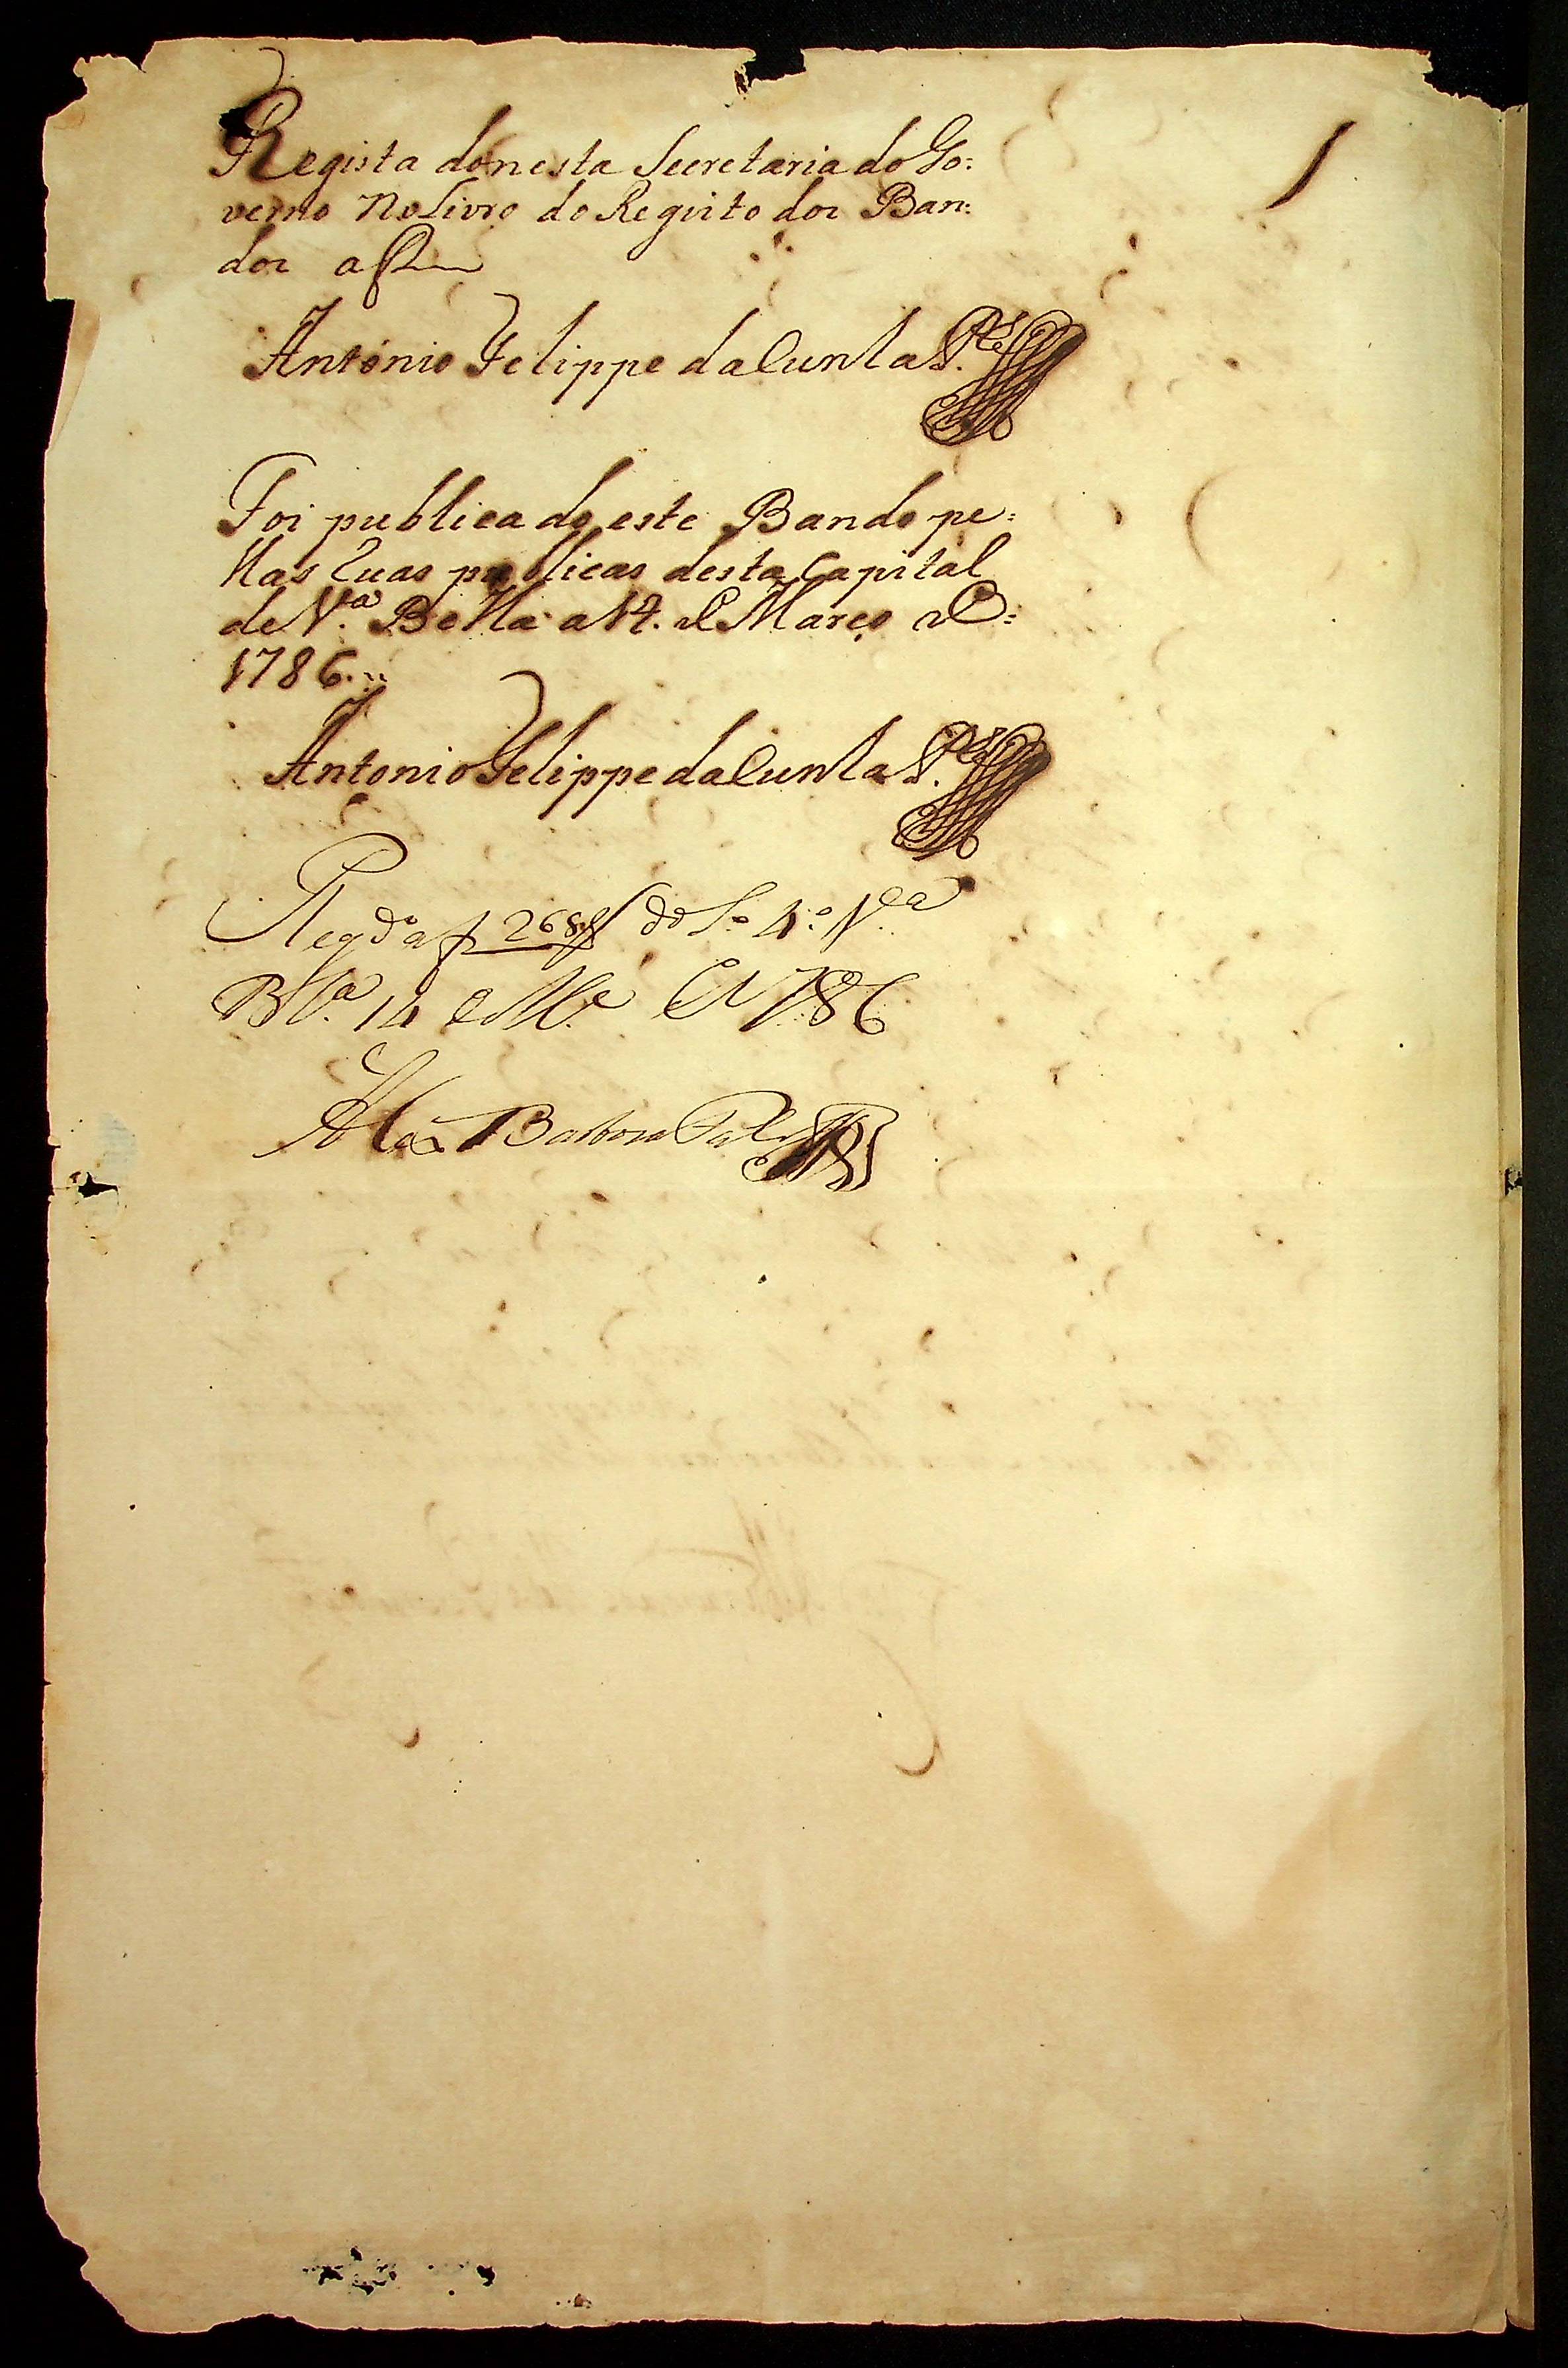 Registado nesta Secretaria do Go=
verno no Livro do Registo dos Ban=
dos a f
Antonio Felippe da Cunha P.
Foi publicado este Bando pe=
llas Ruas publicas desta Capital
de V.ª Bella a 14. de Março de
1786.
Antonio Felippe da Cunha P.
Reg.do a f 268 do L.o 4.o V.ª
B.ª 14 de M.ço de 1786
Barbosa